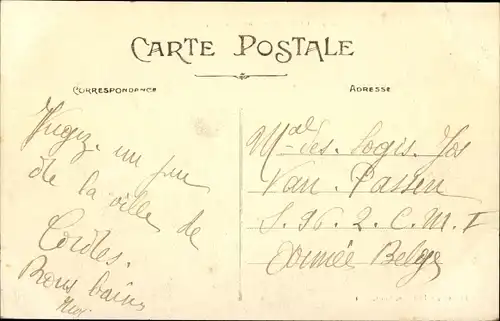 CARTE POSTALE
CORRESPONDANCE
ADRESSE
Jugez. un peu
de la ville de
Bons baisers
Mal-des. Logis. Jos
Van. Passen
S. 96. 2. C. M. I
Armée Belge